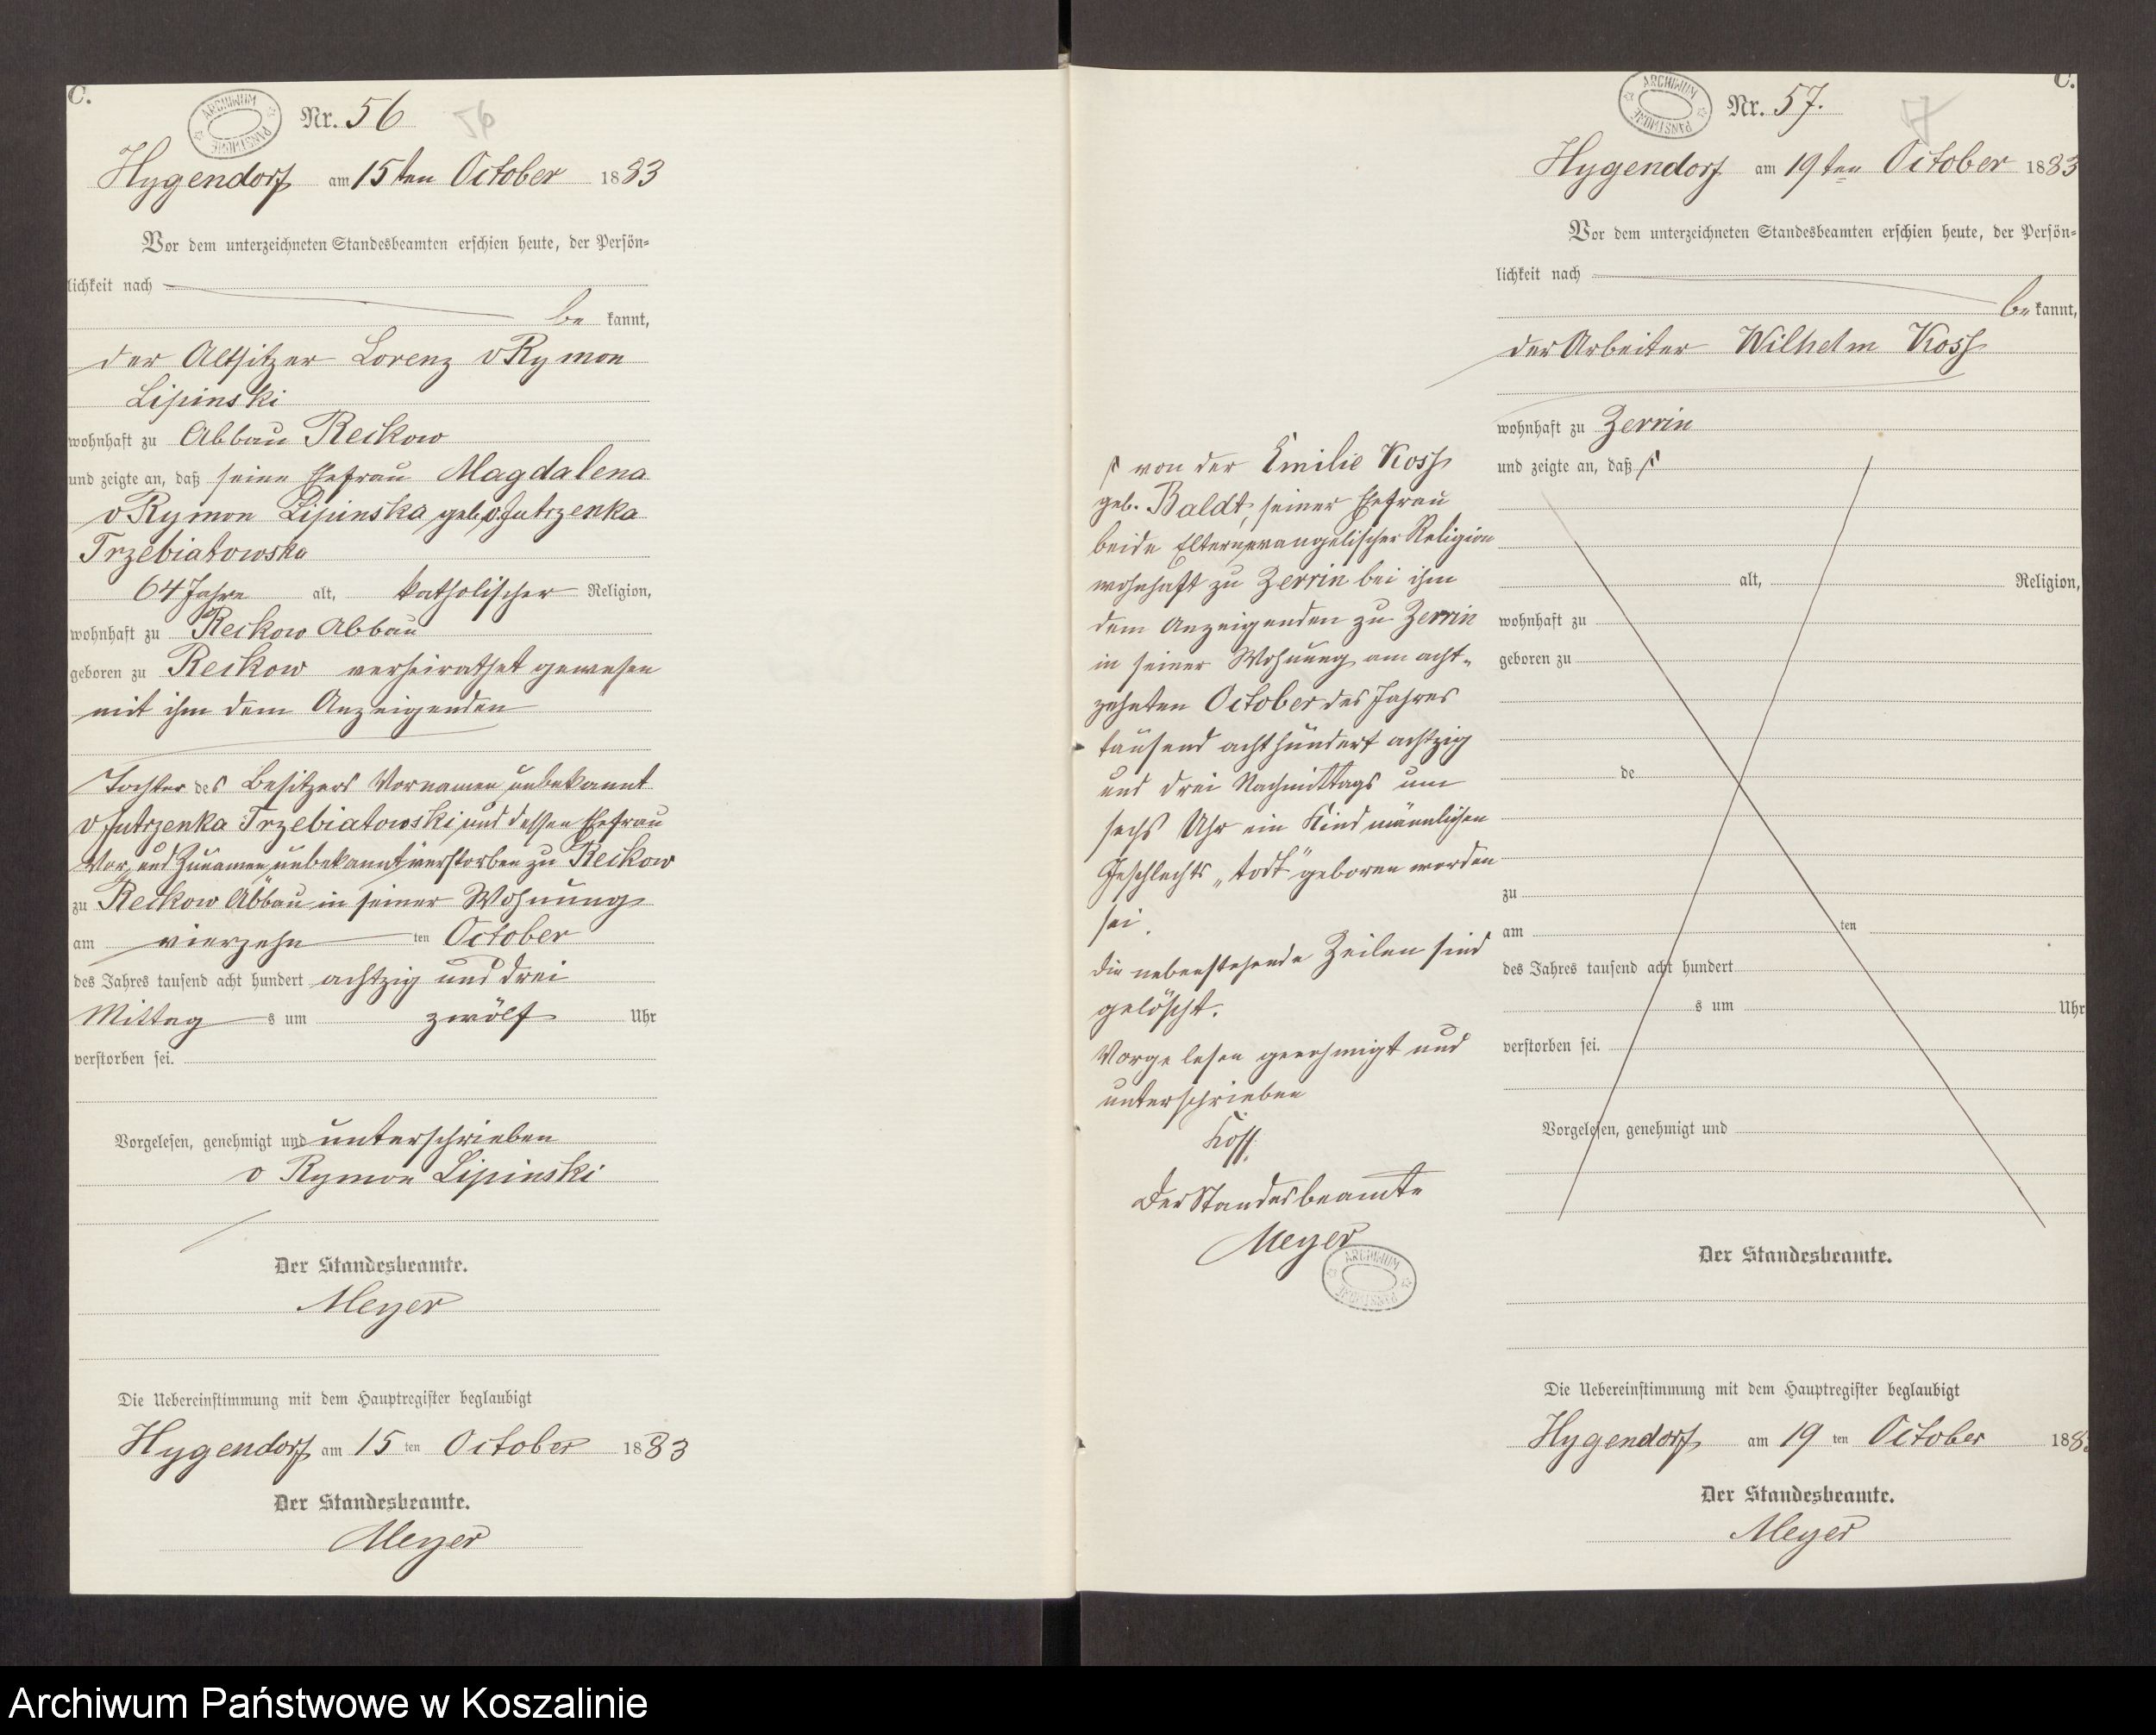 C.
ARCHIWUM PAŃSTWOWE
Nr. 56
56
Hygendorf am 15ten October 1883
Vor dem unterzeichneten Standesbeamten erschien heute, der Persön=
lichkeit nach
be kannt,
der Altsitzer Lorenz v Rymon
Lipinski
wohnhaft zu Abbau Reckow
und zeigte an, daß seine Ehefrau Magdalena
v Rymon Lipinska geb. v Jutrzenka
Trzebiatowska
64 Jahre alt, katholischer Religion,
wohnhaft zu Reckow Abbau
geboren zu Reckow verheirathet gewesen
mit ihm dem Anzeigenden
Tochter des Besitzers Vornamen unbekannt
v Jutrzenka Trzebiatowski und dessen Ehefrau
Vor und Zunamen unbekannt verstorben zu Reckow
zu Reckow Abbau in seiner Wohnung
am vierzehn ten October
des Jahres tausend acht hundert achtzig und drei
Mittag s um zwölf Uhr
verstorben sei.
Vorgelesen, genehmigt und unterschrieben
v Rymon Lipinski
Der Standesbeamte.
Meyer
Die Uebereinstimmung mit dem Hauptregister beglaubigt
Hygendorf am 15 ten October 1883
Der Standesbeamte.
Meyer
C.
ARCHIWUM PAŃSTWOWE
Nr. 57.
57
Hygendorf am 19ten October 1883
Vor dem unterzeichneten Standesbeamten erschien heute, der Persön=
lichkeit nach
be kannt,
der Arbeiter Wilhelm Koss
wohnhaft zu Zerrin
und zeigte an, daß
alt, Religion,
wohnhaft zu
geboren zu
de
zu
am ten
des Jahres tausend acht hundert
s um Uhr
verstorben sei.
Vorgelesen, genehmigt und
Der Standesbeamte.
Die Uebereinstimmung mit dem Hauptregister beglaubigt
Hygendorf am 19 ten October 188
Der Standesbeamte.
Meyer
von der Emilie Koss
geb. Baldt, seiner Ehefrau
beide Eltern evangelischer Religion
wohnhaft zu Zerrin bei ihm
dem Anzeigenden zu Zerrin
in seiner Wohnung am acht-
zehnten October des Jahres
tausend acht hundert achtzig
und drei Nachmittags um
sechs Uhr ein Kind männlichen
Geschlechts „todt“ geboren worden
sei.
Die nebenstehende Zeilen sind
gelöscht.
Vorgelesen genehmigt und
unterschrieben
Koss.
Der Standesbeamte
Meyer
ARCHIWUM PAŃSTWOWE
Archiwum Państwowe w Koszalinie